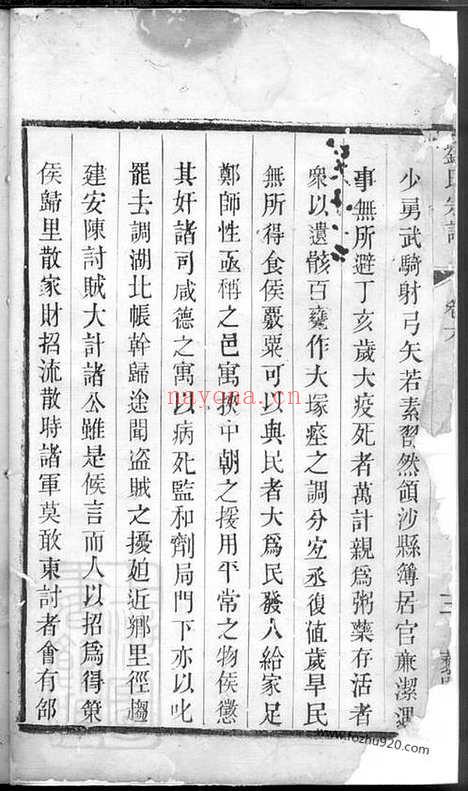 劉氏宗譜
卷六
三
少勇武騎射弓矢若素習然領沙縣簿居官廉潔遇
事無所避丁亥歲大疫死者萬計親爲粥藥存活者
衆以遺骸百甕作大塚瘞之調分宜丞復値歲旱民
無所得食侯覈粟可以與民者大爲民發入給家足
鄭師性亟稱之邑寓挾中朝之援用平常之物侯懲
其奸諸司咸德之寓以病死監和劑局門下亦以叱
罷去調湖北帳幹歸途聞盜賊之擾廹近鄉里徑趨
建安陳討賊大計諸公雖是侯言而人以招爲得策
侯歸里散家財招流散時諸軍莫敢東討者會有部
nayona.cn
www.fozhu920.com